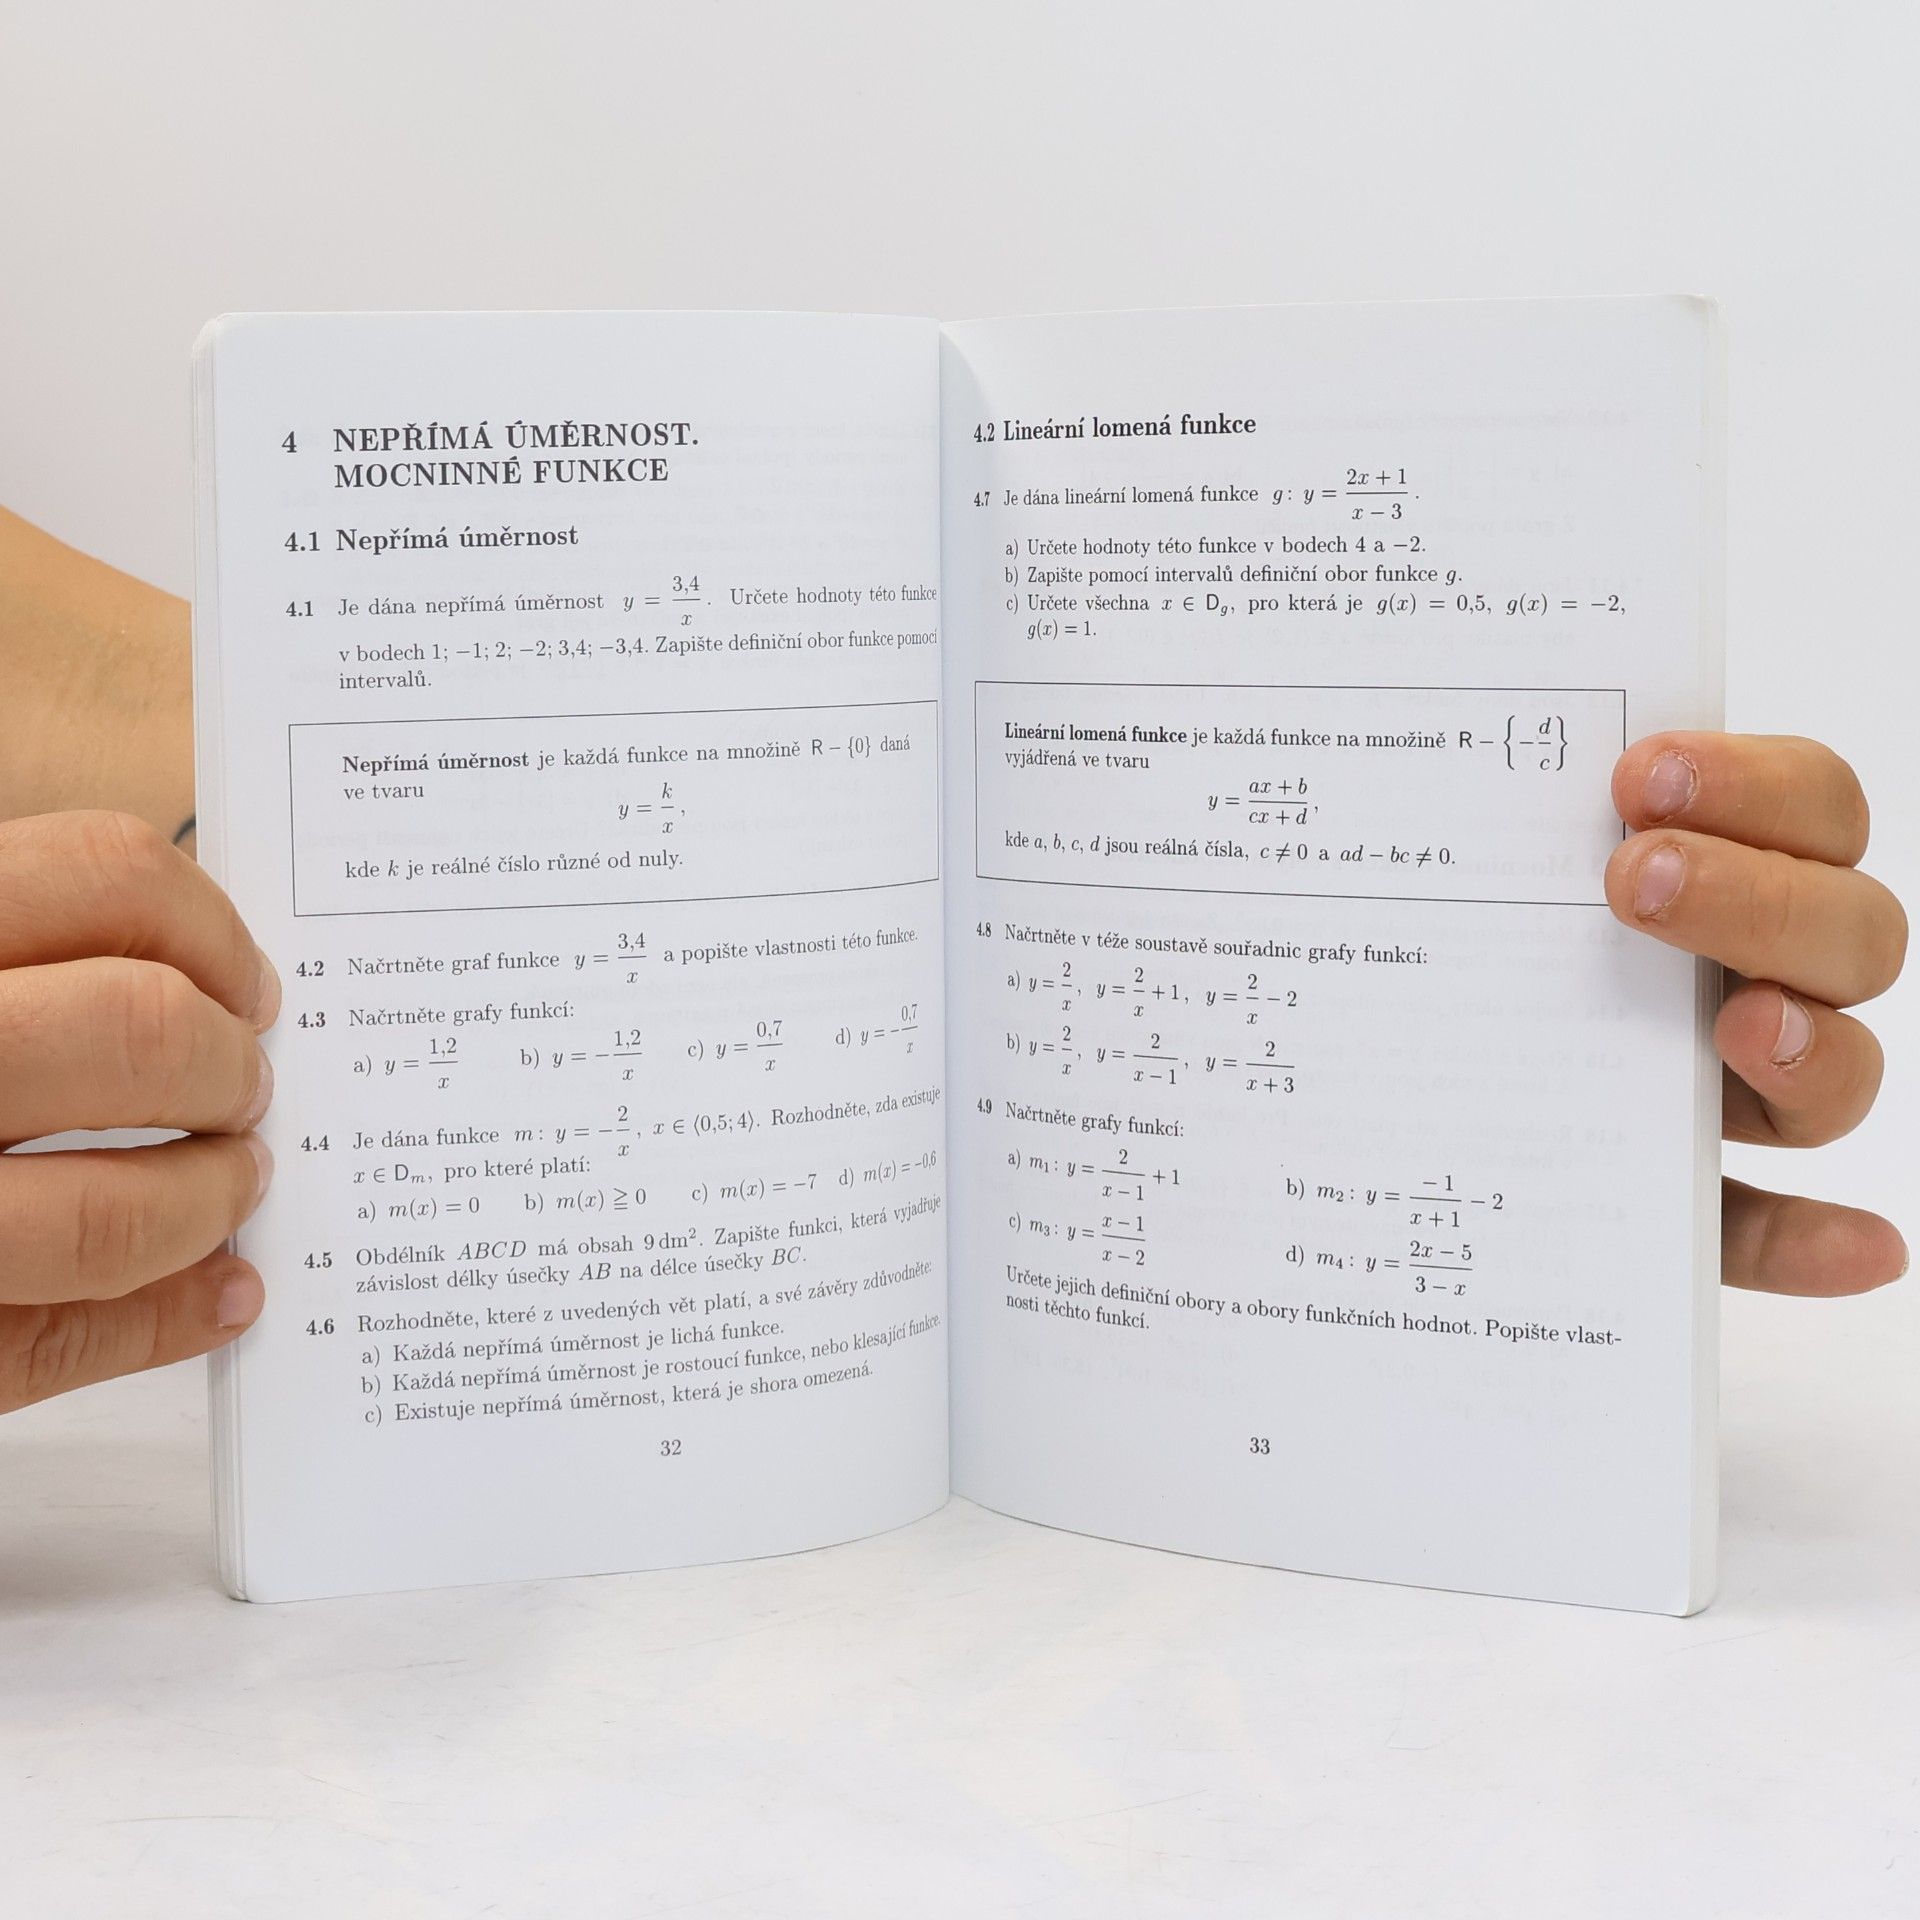 4 NEPŘÍMÁ ÚMĚRNOST.
MOCNINNÉ FUNKCE
4.1 Nepřímá úměrnost
4.1 Je dána nepřímá úměrnost y = 3,4/x . Určete hodnoty této funkce
v bodech 1; −1; 2; −2; 3,4; −3,4. Zapište definiční obor funkce pomocí
intervalů.
Nepřímá úměrnost je každá funkce na množině R − {0} daná
ve tvaru
y = k/x ,
kde k je reálné číslo různé od nuly.
4.2 Načrtněte graf funkce y = 3,4/x a popište vlastnosti této funkce.
4.3 Načrtněte grafy funkcí:
a) y = 1,2/x b) y = −1,2/x c) y = 0,7/x d) y = −0,7/x
4.4 Je dána funkce m: y = −2/x , x ∈ ⟨0,5; 4⟩. Rozhodněte, zda existuje
x ∈ Dm, pro které platí:
a) m(x) = 0 b) m(x) ≧ 0 c) m(x) = −7 d) m(x) = −0,6
4.5 Obdélník ABCD má obsah 9 dm². Zapište funkci, která vyjadřuje
závislost délky úsečky AB na délce úsečky BC.
4.6 Rozhodněte, které z uvedených vět platí, a své závěry zdůvodněte:
a) Každá nepřímá úměrnost je lichá funkce.
b) Každá nepřímá úměrnost je rostoucí funkce, nebo klesající funkce.
c) Existuje nepřímá úměrnost, která je shora omezená.
32
4.2 Lineární lomená funkce
4.7 Je dána lineární lomená funkce g: y = (2x + 1)/(x − 3) .
a) Určete hodnoty této funkce v bodech 4 a −2.
b) Zapište pomocí intervalů definiční obor funkce g.
c) Určete všechna x ∈ Dg, pro která je g(x) = 0,5, g(x) = −2,
g(x) = 1.
Lineární lomená funkce je každá funkce na množině R − {−d/c}
vyjádřená ve tvaru
y = (ax + b)/(cx + d) ,
kde a, b, c, d jsou reálná čísla, c ≠ 0 a ad − bc ≠ 0.
4.8 Načrtněte v téže soustavě souřadnic grafy funkcí:
a) y = 2/x , y = 2/x + 1, y = 2/x − 2
b) y = 2/x , y = 2/(x − 1) , y = 2/(x + 3)
4.9 Načrtněte grafy funkcí:
a) m1: y = 2/(x − 1) + 1 b) m2: y = −1/(x + 1) − 2
c) m3: y = (x − 1)/(x − 2) d) m4: y = (2x − 5)/(3 − x)
Určete jejich definiční obory a obory funkčních hodnot. Popište vlast-
nosti těchto funkcí.
33